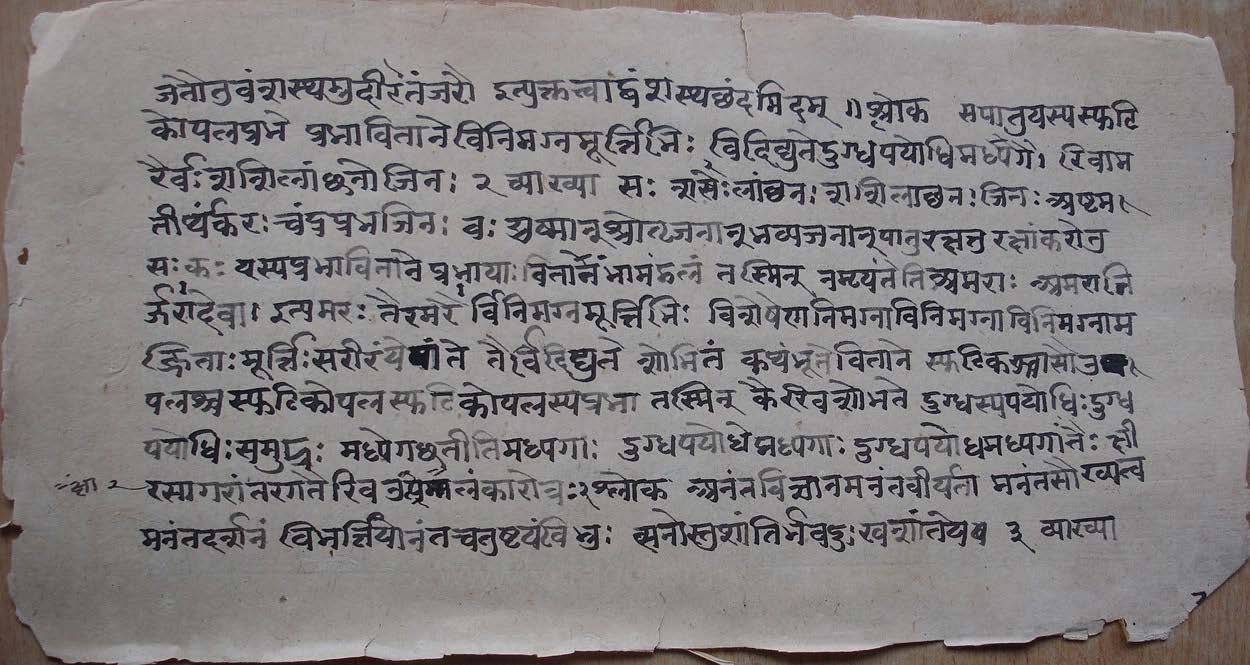 जेतौतुवंशस्थमुदीरतंजरौ इत्युक्तत्वाद्वंशस्थछंदमिदम् ॥ श्लोक सपातुयस्यस्फटि
कोपलप्रभे प्रभावितानेविनिमग्नमूर्त्तिभिः विदिद्युतेदुग्धपयोधिमध्यगै। रिवाम
रैर्वःशशिलांछनोजिनः २ व्याख्या सः शसैःलांछनः शशिलाछनः जिनः अष्टमः
तीर्थंकरः चंद्रप्रभजिनः वः युष्मान्श्रोतृजनान्भव्यजनान्पातुरक्षतु रक्षांकरोतु
सः कः यस्यप्रभाविताने प्रभायाः वितानंभामंडलं तस्मिन् नम्रयंतेतिअमराः अमरानि
र्जरादेवाः इत्यमरः तैरमरैर्विनिमग्नमूर्त्तिभिः विशेषेणनिमग्नाविनिमग्ना विनिमग्नाम
ज्जिताः मूर्त्तिः सरीरंयेषांते तैर्विदिद्युते शोभितं कथंभूतेविताने स्फटिकश्चासौउ
पलश्चस्फटिकोपलस्फटिकोपलस्यप्रभा तस्मिन् कैरिवशोभते दुग्धस्यपयोधिः दुग्ध
पयोधिः समुद्रः मध्येगछतीतिमध्यगाः दुग्धपयोधेमध्यगाः दुग्धपयोधमध्यगांतैः क्षी
रसागरांतरगतेरिव लंकारोत्रः २ श्लोक अनंतविज्ञानमनंतवीर्यता मनंतसौख्यत्व
मनंतदर्शनं विभर्त्तियोनंतचतुष्टयंविभुः सनोस्तुशांतिर्भवदुःखशांतये ३ व्याख्या